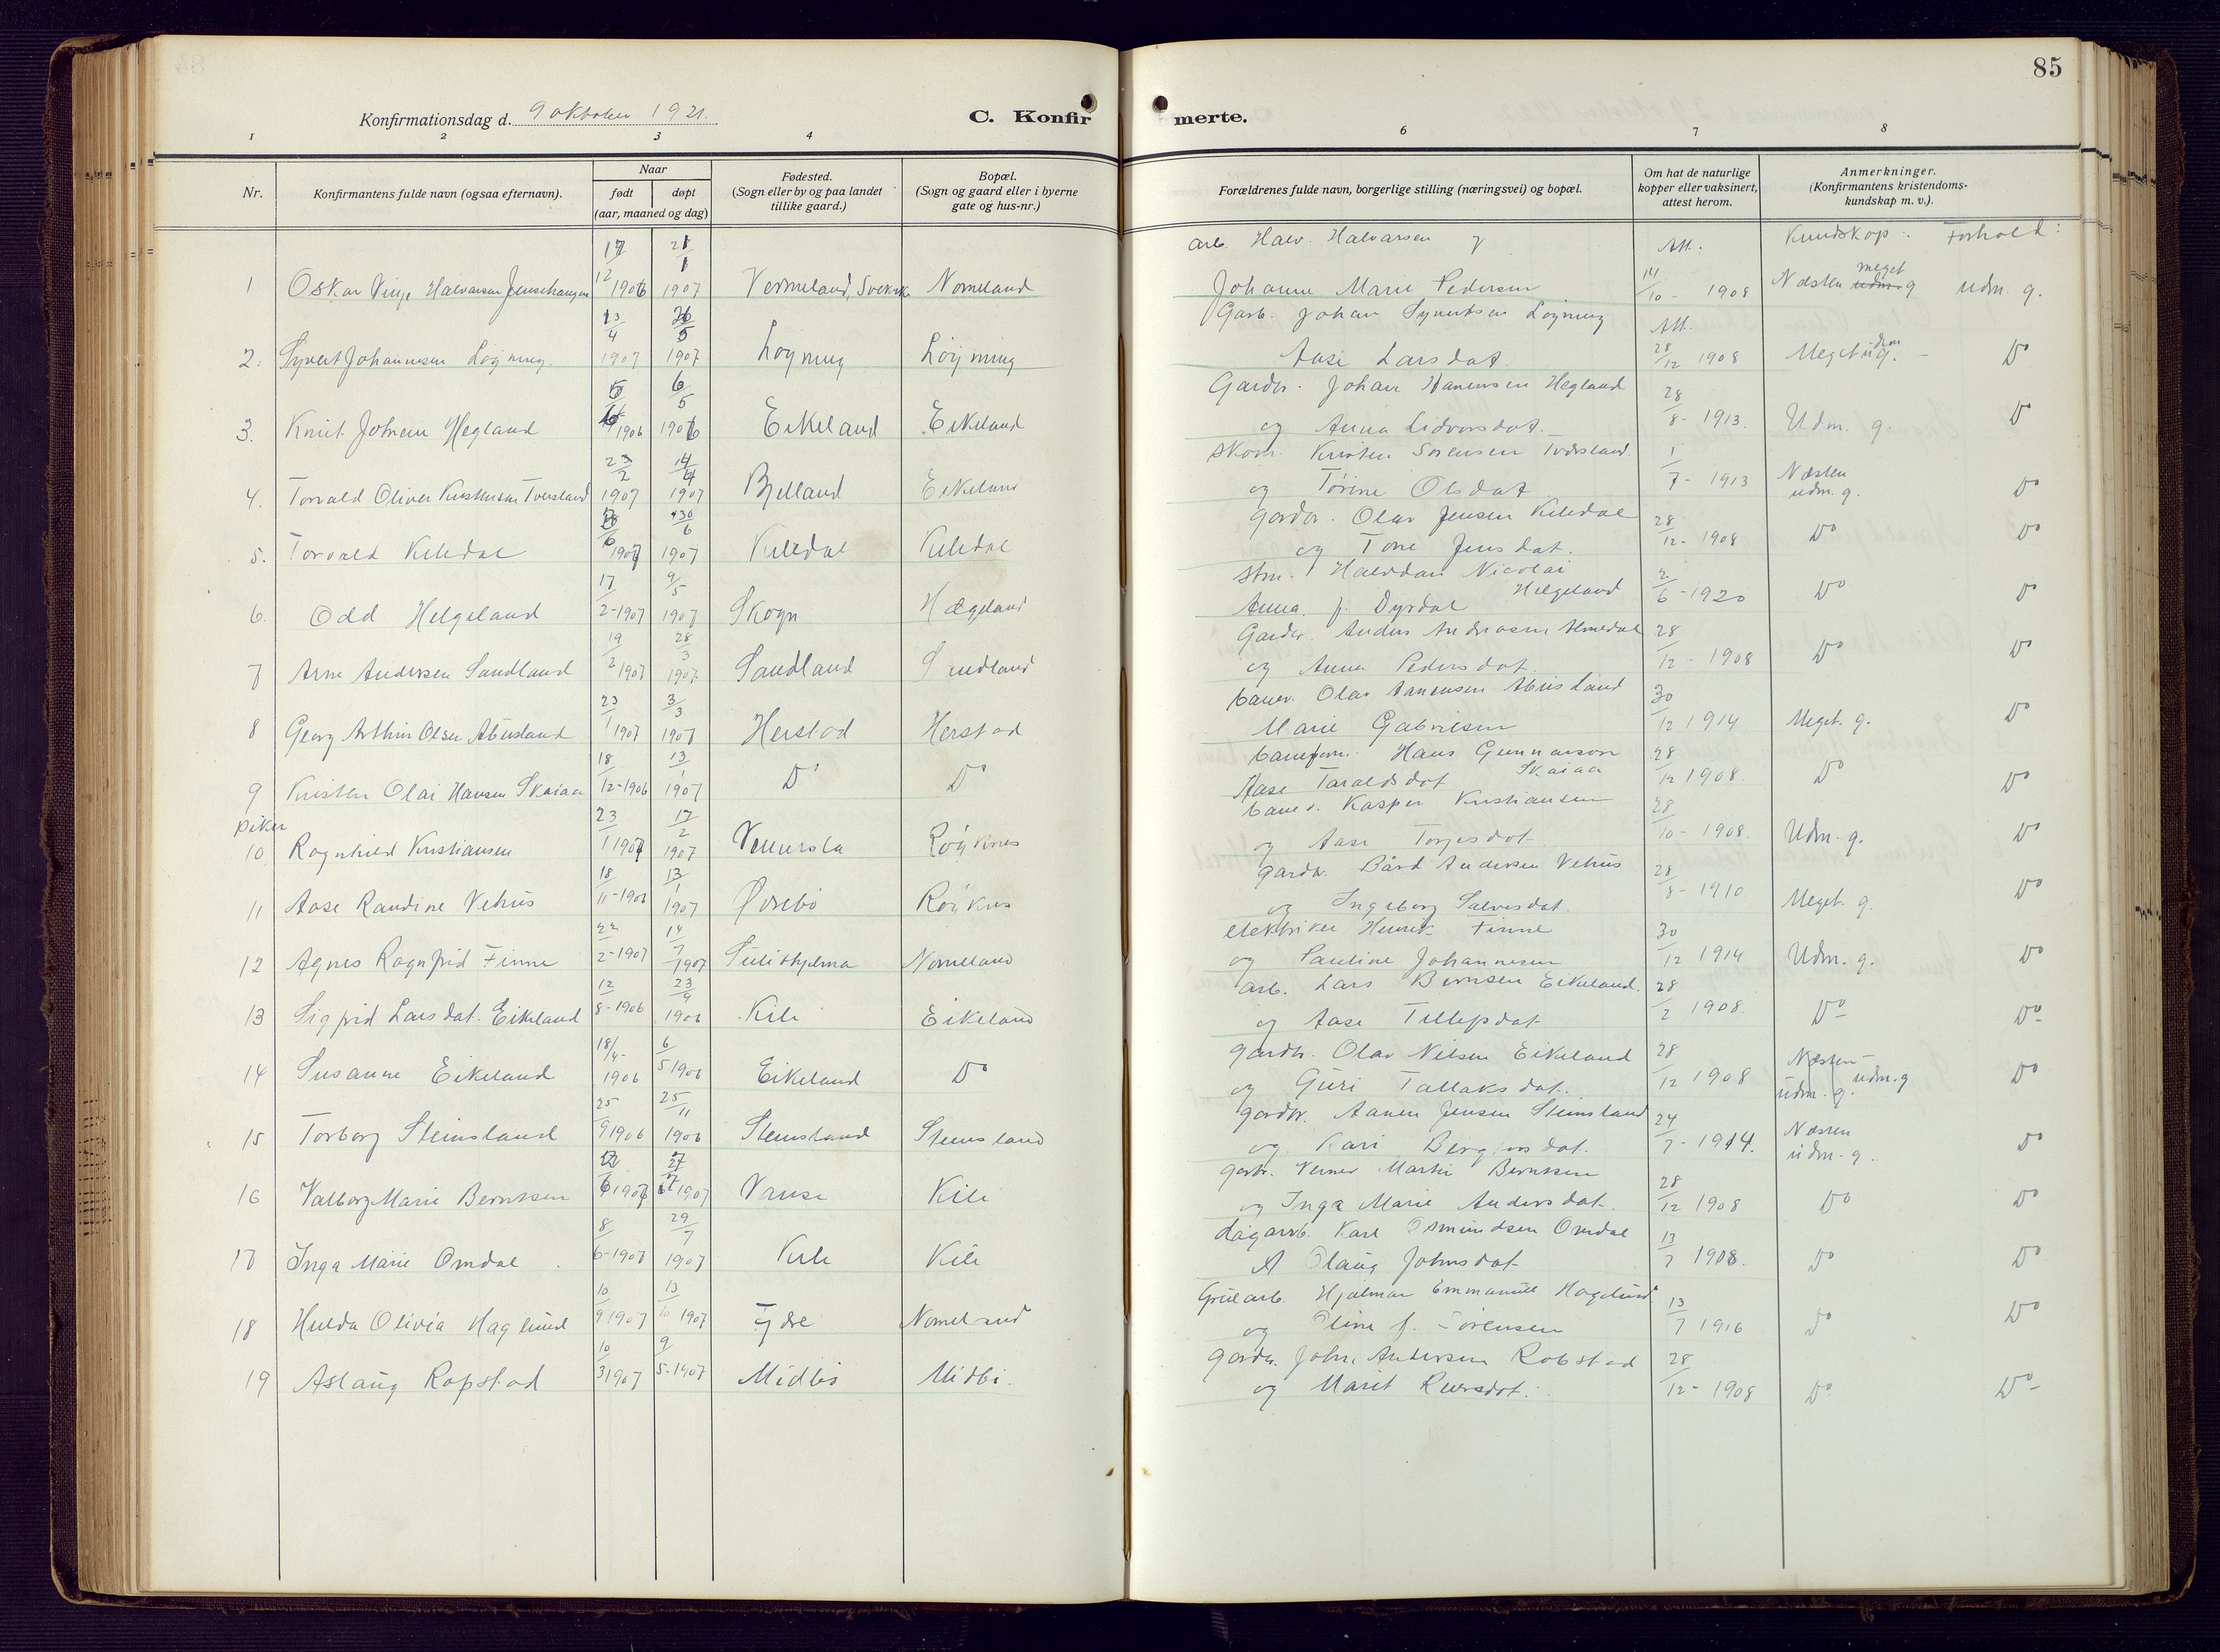 85
Konfirmationsdag d. 9 oktober 1921.
C. Konfirmerte.
1 2 3 4 6 7 8
Nr.
Konfirmantens fulde navn (ogsaa efternavn).
Naar
født
døpt
(aar, maaned og dag)
Fødested.
(Sogn eller by og paa landet
tillike gaard.)
Bopæl.
(Sogn og gaard eller i byerne
gate og hus-nr.)
Forældrenes fulde navn, borgerlige stilling (næringsvei) og bopæl.
Om hat de naturlige
kopper eller vaksinert,
attest herom.
Anmerkninger.
(Konfirmantens kristendoms-
kundskap m. v.).
arb. Halv. Halvorsen Att. Kundskap: Forhold:
1 Oskar Halvorsen 12 1906 21/1 1907 Vermeland, Nomeland Johanne Marie Pedersen 14/10 - 1908 Næsten meget g udm. g.
Garb. Johan Syvertsen Løyning Att.
2. Syvert Johannesen Løyning. 13/4 1907 26/5 1907 Løyning Løyning Aase Larsdat. 28/12 1908 Meget g. Do
Gardbr. Johan Hegland
3. Knut Johnsen Hegland 1906 6/5 1906 Eikeland Eikeland og Anna Lidvorsdat. 28/8 - 1913. Udm. g. Do
Kristen Sørensen
4. Torvald Oliver Kristensen 23/2 1907 14/4 1907 Bjelland Eikeland og Torine Olsdat 1/7 - 1913 Næsten udm. g. Do
Gardbr. Olav Jensen Kiledal
5. Torvald Kiledal 6 1907 30/6 1907 Kiledal Kiledal og Tone Jensdat. 28/12 - 1908 Do Do
Halvdan Nicolai Helgeland
6. Odd Helgeland 17/2 - 1907 9/5 1907 Skogn Hægeland Anna f. Dyrdal 2/6 - 1920 Do Do
Gardbr. Anders Andreasen
7 Arne Andersen Sandland 19/2 1907 28/3 1907 Sandland Sandland og Anna Pedersdat. 28/12 - 1908 Do Do
banev. Olav Aanensen Abusland
8 Georg Arthur Olsen Abusland 23/1 1907 3/3 1907 Herstad Herstad Marie Gabrielsen 30/12 1914 Meget. g. Do
Hans Gunnarson Skaiaa
9 Kristen Olai Hansen Skaiaa 18/12 - 1906 13/1 1907 Do Do Aase Taraldsdat 28/12 1908. Do Do
Piker
banev. Kasper Kristiansen
10 Ragnhild Kristiansen 23/1 1907 17/2 1907 Vennesla Røyknes og Aase Torjesdat 28/10 - 1908. Udm. g. Do
Gardbr. Bård Andersen Vehus
11 Aase Randine Vehus 18/11 - 1906 13/1 1907 Øvrebø Røyknes og Ingeborg Salvesdat. 28/8 - 1910 Meget. g. Do
elektriker Henrik Finne
12 Agnes Ragnfrid Finne 22/2 - 1907 14/7 1907 Sulitjelma Nomeland og Pauline Johannesen 30/12 1914 Udm. g. Do
arb. Lars Berntsen Eikeland.
13 Sigfrid Larsdat. Eikeland 12/8 - 1906 23/9 1906 Kile Eikeland og Aase Tellefsdat 28/2 1908. Do Do
Gardbr. Olav Nilsen Eikeland
14 Susanne Eikeland 18/4 - 1906 6/5 1906 Eikeland Do og Guri Tallaksdat. 28/12 1908 Næsten udm. g. udm. g Do
gardbr. Aanen Jensen Steinsland
15 Torborg Steinsland 25/9 1906 25/11 1906 Steinsland Steinsland og Kari Bergtorsdat. 24/7 - 1914. Næsten udm. g. Do
Verner Martin Berntsen
16 Valborg Marie Berntsen 1907 1907 Vanse Kile og Inga Marie Andersdat. 28/12 1908 Do Do
dagarb. Karl Osmundsen Omdal
17 Inga Marie Omdal 8/6 - 1907 29/7 1907 Kile Kile Johnsdat 13/7 1908. Do Do
Hjalmar Emmanuel Haglund
18 Hulda Olivia Haglund 10/9 1907 13/10 1907 Nomeland og f. Sørensen 13/7 1916 Do Do
Gardbr. John Andersen Robstad
19 Aslaug Ropstad 10/3 1907 9/5 - 1907 Midbø Midbø. og Marit 28/12 - 1908 Do Do